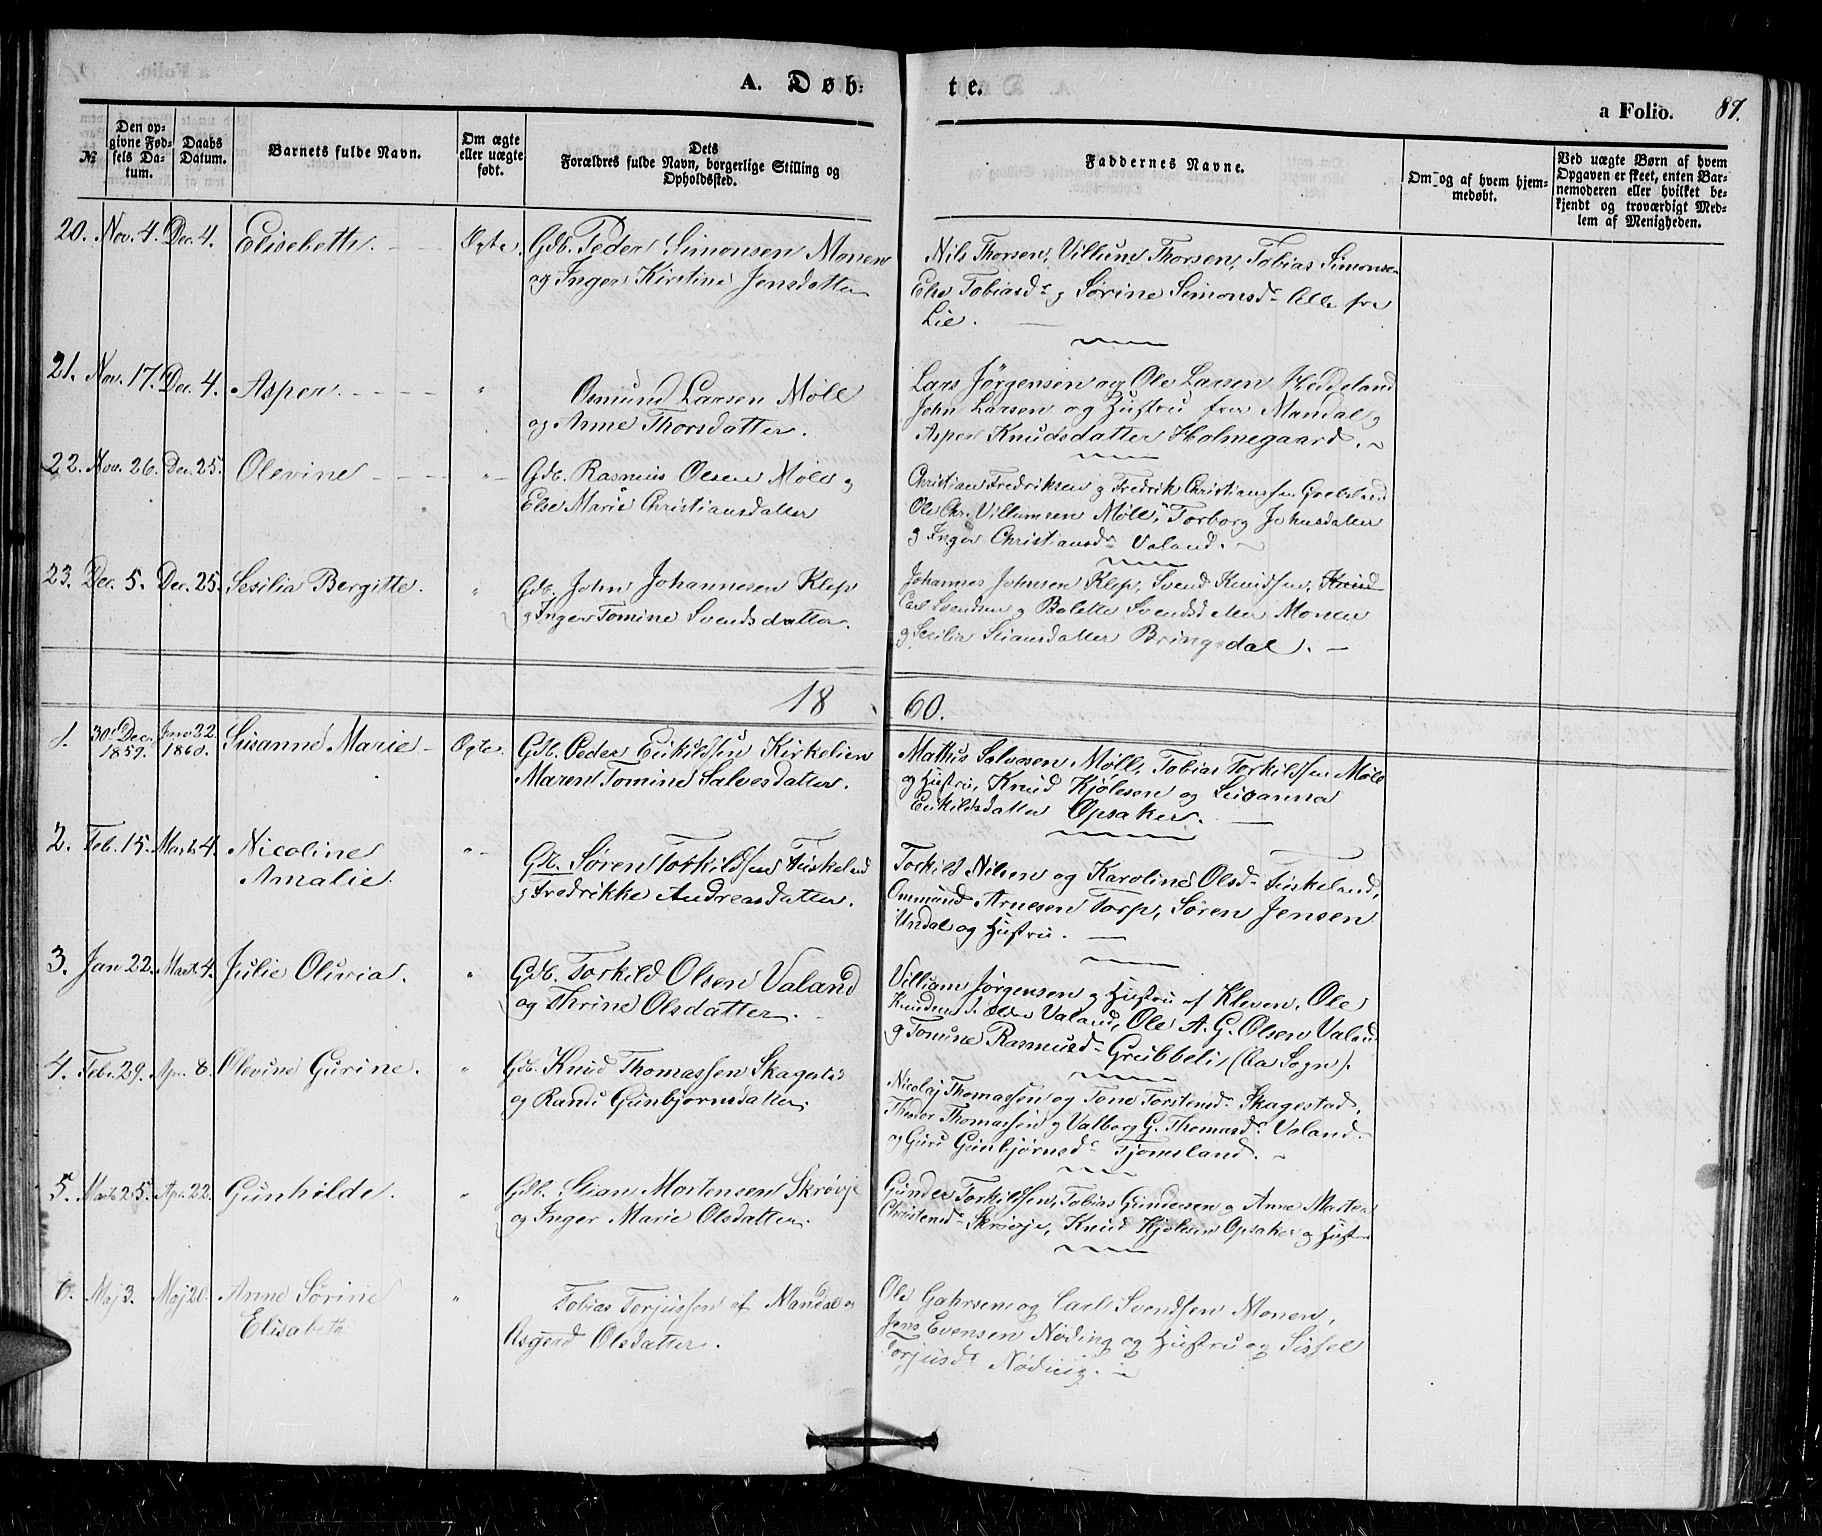 A. Døb:
te.
a Folio. 87.
№ Den opgivne Fødsels Datum. Daabs Datum. Barnets fulde Navn. Om ægte eller uægte født. Dets Forældres fulde Navn, borgerlige Stilling og Opholdssted.
Faddernes Navne. Om og af hvem hjemmedøbt. Ved uægte Børn af hvem Opgaven er skeet, enten Barnemoderen eller hvilket bekjendt og troværdigt Medlem af Menigheden.
20. Nov. 4. Dec. 4. Elisebeth. Ægte. Gdb. Peder Simonsen Monen
og Inger Kirstine Jensdatter
Nils Thorsen, Villum Thorsen, Tobias Simonsen
Else Tobiasdr og Sørine Simonsdr Alle fra
Lie.
21. Nov. 17. Dec. 4. Asper. " Osmund Larsen Møll
og Anne Thorsdatter.
Lars Jørgensen og Ole Larsen Heddeland
John Larsen og Hustru fra Mandal og
Asper Knudsdatter Holmegaard.
22. Nov. 26. Dec. 25. Olevine " Gdb. Rasmus Olsen Møll og
Else Marie Christiansdatter
Christian Fredriksen og Fredrik Christianssen
Ole Chr. Villumsen Møll, Torborg Johnsdatter
og Inger Christiansdr Valand.
23. Dec. 5. Dec. 25. Sesilia Bergitte. " Gdb. John Johannesen Klep
og Inger Tomine Svendsdatter.
Johannes Johnsen Klep, Svend Knudsen, Knud
Carl Svendsen og Bolette Svendsdatter Monen
og Secilie Stiansdatter Bringsdal.
18 60.
1. 30 Dec. 1859. Jan 22. 1860. Susanne Marie Ægte. Gdb. Peder Enkildsen Kirkelien
Maren Tomine Salvesdatter.
Mathis Salvesen Møll, Tobias Torkildsen Møll
og Hustru, Knud Kjølesen og Susanna
Enkildsdatter Opsaker.
2. Feb. 15. Marts 4. Nicoline
Amalie. " Gdb. Søren Torkildsen Finkeland
og Fredrikke Andreasdatter.
Torkild Nilsen og Karoline Olsdr Finkeland,
Ommund Arnesen Torp, Søren Jensen
Undal og Hustru.
3. Jan 22. Marts 4. Julie Olivia. " Gdb. Torkild Olsen Valand
og Thrine Olsdatter.
Villiam Jørgensen og Hustru af Kleven, Ole
Knudsen Valand, Ole A. G. Olsen Valand
og Tomine Rasmusdr Grubbeli (Ha Sogn).
4. Febr. 29. Apr. 8. Olevine Gurine. " Gdb. Knud Thomassen Skagestad
og Randi Gunbjørnsdatter.
Nicolaj Thomassen og Tone Torstensdr Skagestad,
Theodor Thomassen og Valborg G. Thomasdr Valand.
og Guri Gunbjørnsdr Tjomsland.
5. Marts 25. Apr. 22. Gunhilde. " Gdb. Stian Mortensen Skrøvje
og Inger Marie Olsdatter.
Gunder Torkildsen, Tobias Gundersen og Anne Marten
Christensdr Skrøvje, Knud Kjølesen Opsaker og Hustru
6. Maj 3. Maj 20. Anne Sørine
Elisabeth " Tobias Torjussen af Mandal og
Asgerd Olsdatter.
Ole Gahrsen og Carl Svendsen Monen,
Jens Evensen Nøding og Hustru og Sissel
Torjusdr Nøding.